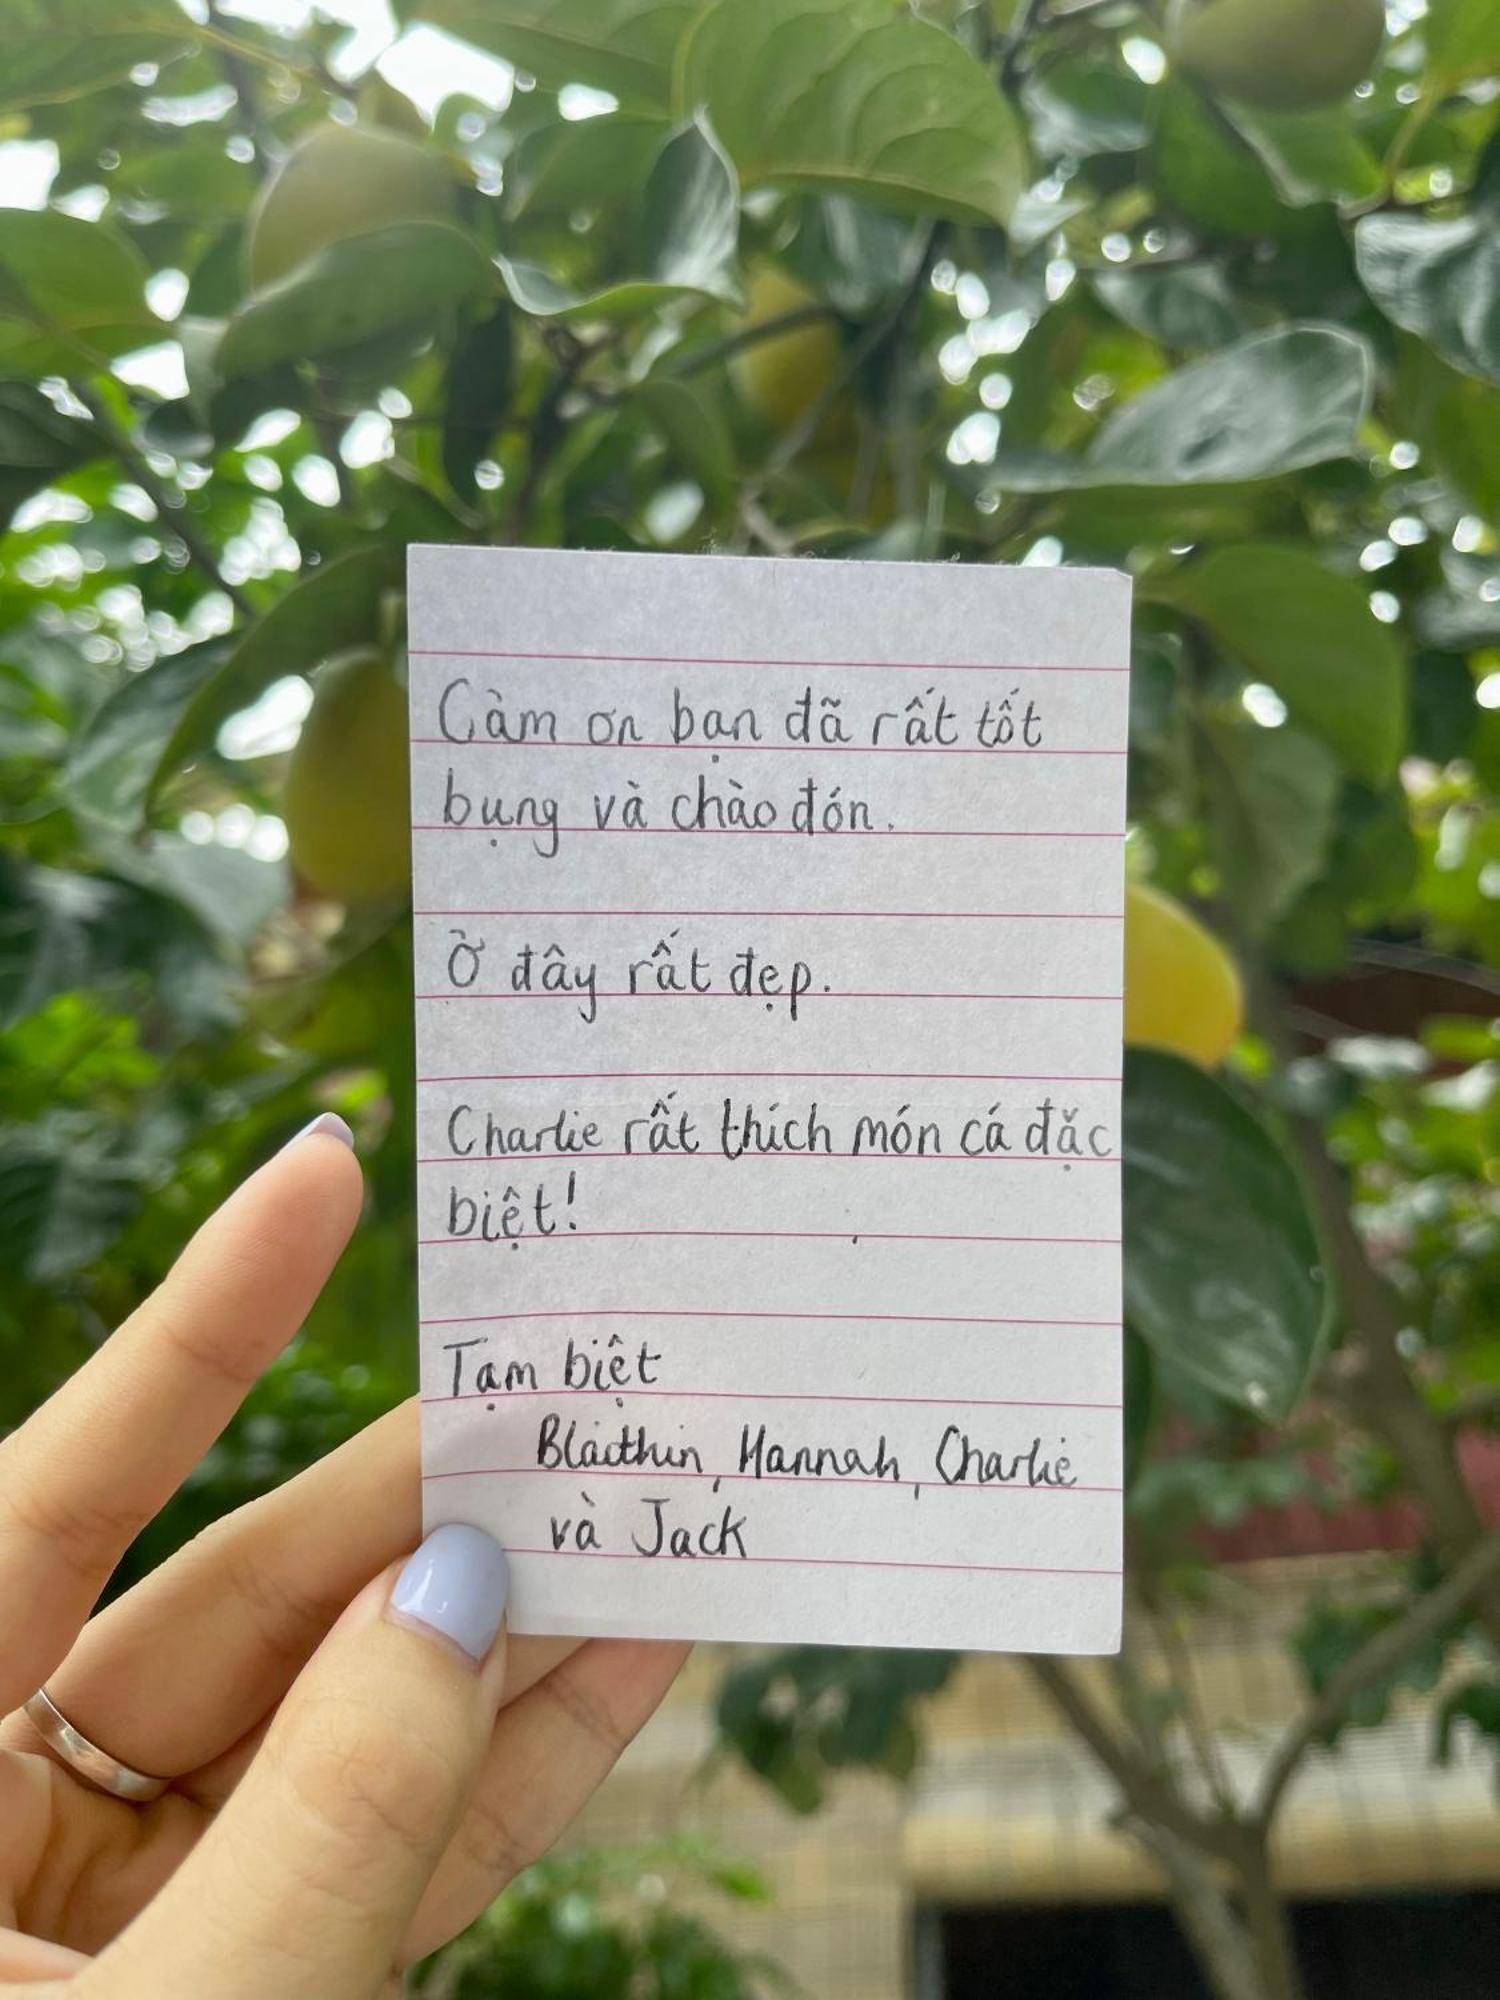 Càm ơn bạn đã rất tốt
bụng và chào đón.
Ở đây rất đẹp.
Charlie rất thích món cá đặc
biệt!
Tạm biệt
Bláithin, Hannah, Charlie
và Jack